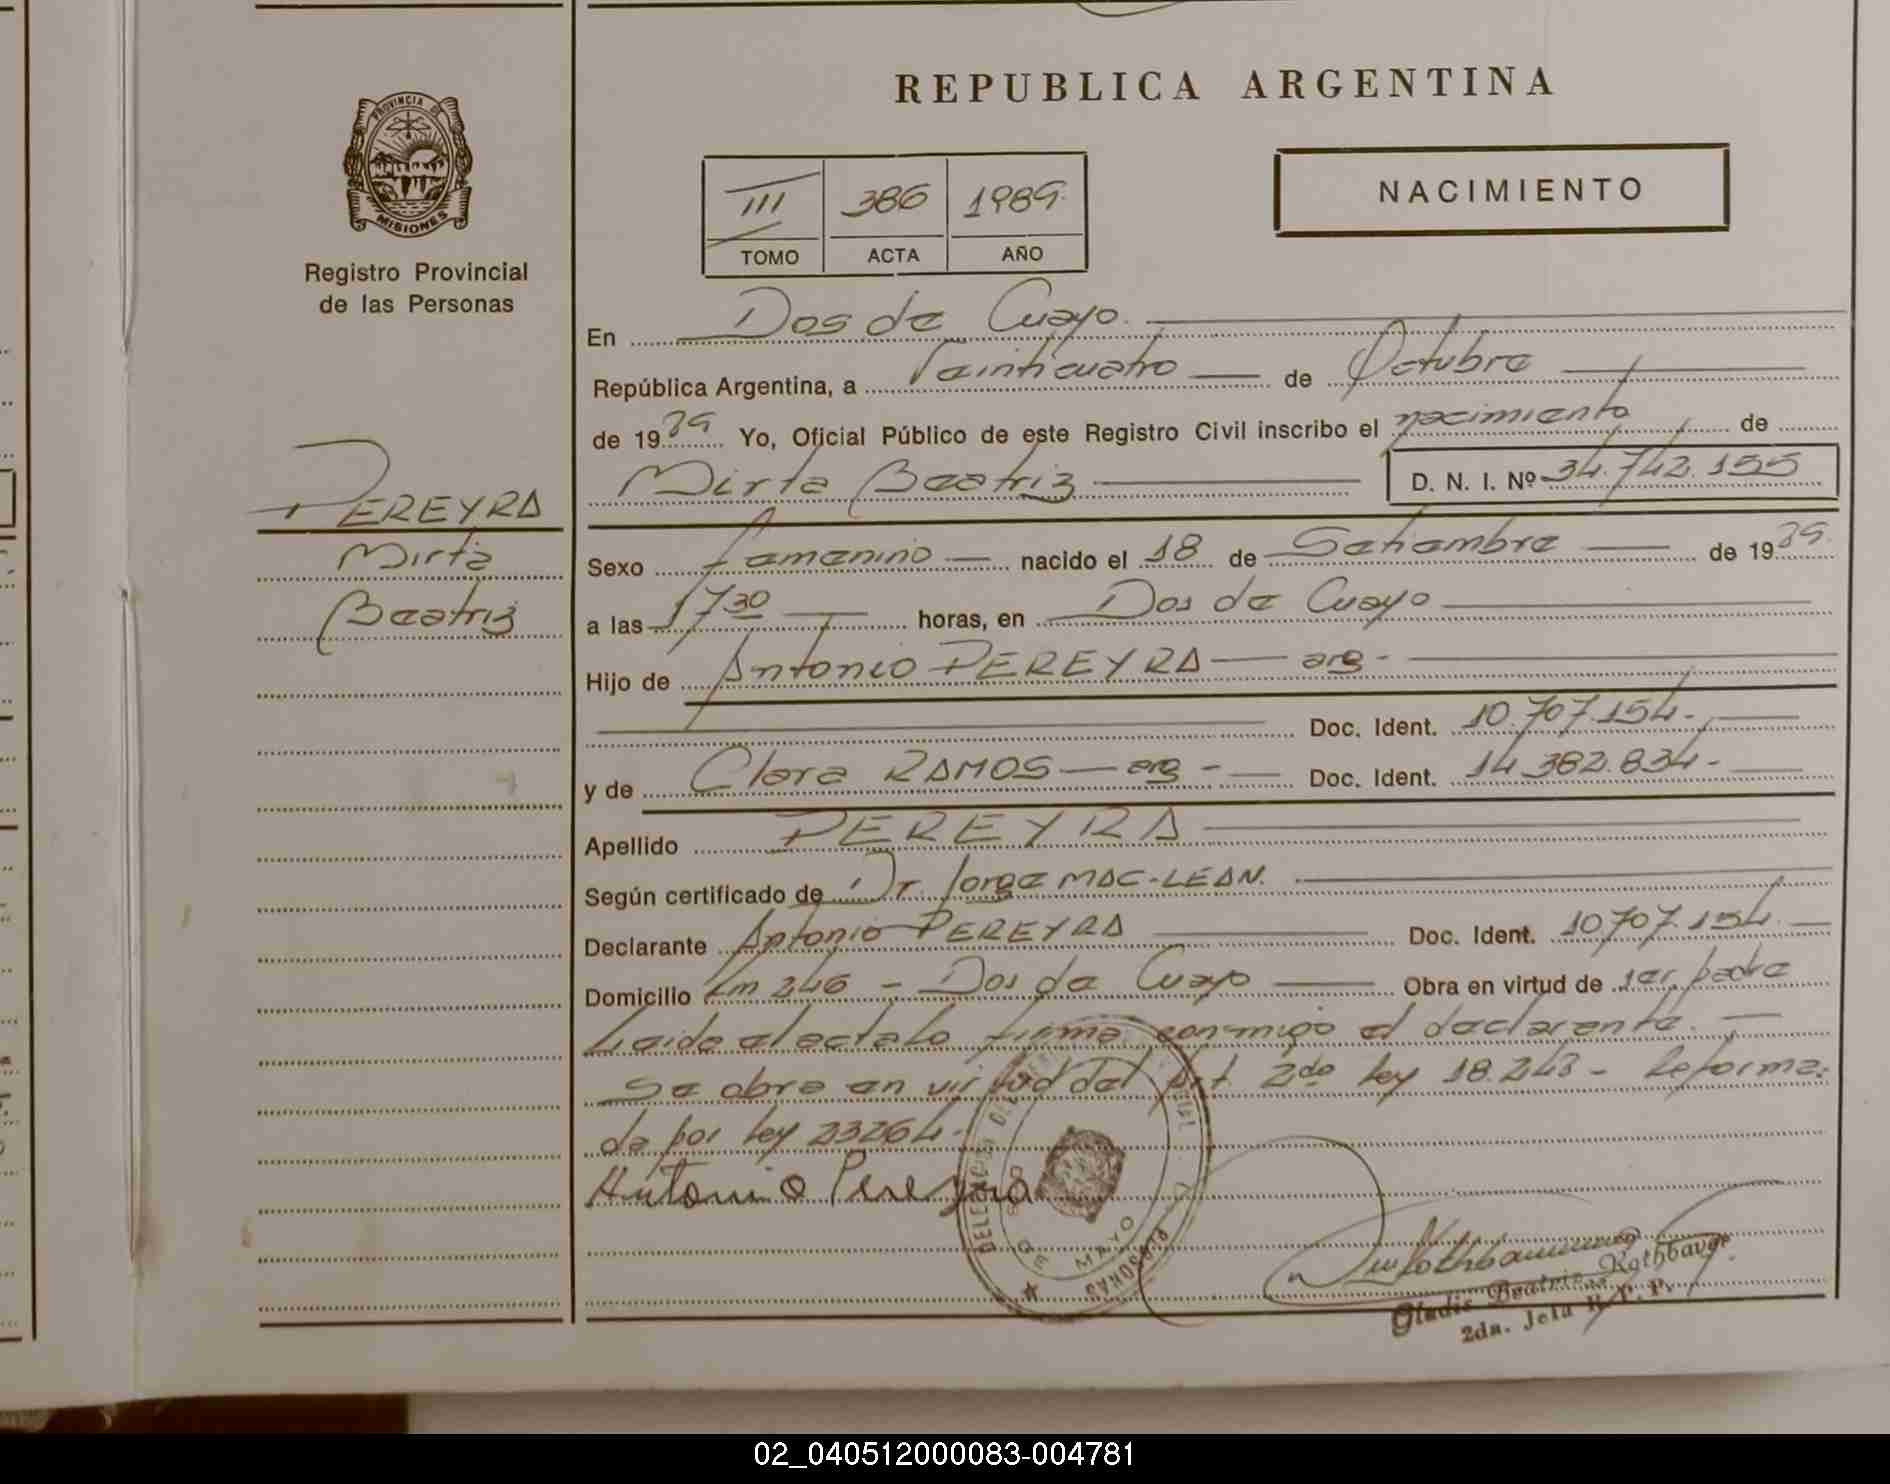 REPUBLICA ARGENTINA
PROVINCIA DE
MISIONES
Registro Provincial
de las Personas
III 386 1989
TOMO ACTA AÑO
NACIMIENTO
PEREYRA
Mirta
Beatriz
En Dos de Mayo
República Argentina, a Veinticuatro de Octubre
de 1989 Yo, Oficial Público de este Registro Civil inscribo el nacimiento de
Mirta Beatriz D. N. I. Nº 34.742.155
Sexo Femenino nacido el 18 de Setiembre de 1989
a las 17 30 horas, en Dos de Mayo
Hijo de Antonio PEREYRA - arg -
Doc. Ident. 10.707.154-
y de Clara RAMOS - arg - Doc. Ident. 14.382.834-
Apellido PEREYRA
Según certificado de Dr. Jorge MAC-LEAN.
Declarante Antonio PEREYRA Doc. Ident. 10.707.154
Domicilio Km 246 - Dos de Mayo Obra en virtud de ser padre
Leida el acta lo firma conmigo el declarante.
Se obra en virtud del Art 2do ley 18.248 - Reforma-
da por ley 23264-
Antonio Pereyra
DE MAYO
Gladis Beatriz
2da. Jefa R. P. P.
02_040512000083-004781